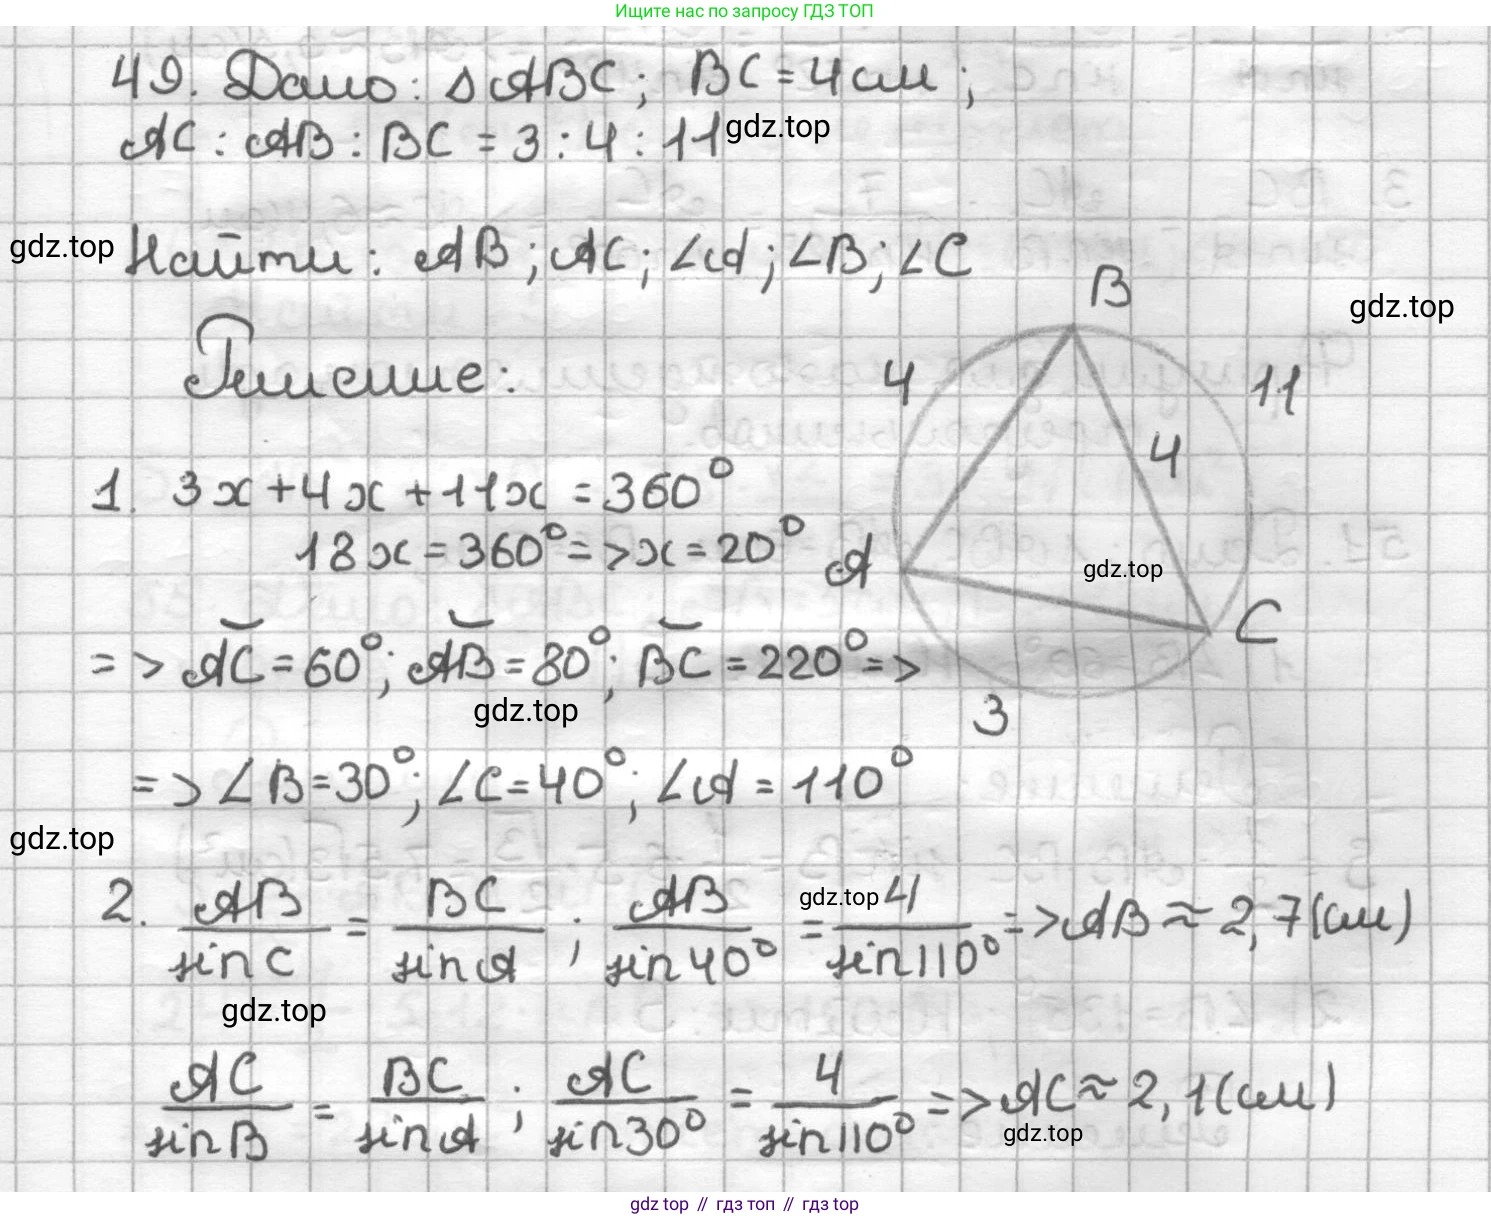 Ищите нас по запросу ГДЗ ТОП
49. Дано: △ABC; BC = 4 см;
AC : AB : BC = 3 : 4 : 11
gdz.top
gdz.top
Найти: AB; AC; ∠A; ∠B; ∠C
B
gdz.top
Решение:
4
11
4
1. 3x + 4x + 11x = 360°
18x = 360° => x = 20°
A
gdz.top
C
=> ◡AC = 60°; ◡AB = 80°; ◡BC = 220° =>
gdz.top
3
=> ∠B = 30°; ∠C = 40°; ∠A = 110°
gdz.top
2. AB/sin C = BC/sin A; AB/sin 40° = 4/sin 110° => AB ≈ 2,7 (см)
gdz.top
gdz.top
AC/sin B = BC/sin A; AC/sin 30° = 4/sin 110° => AC ≈ 2,1 (см)
gdz.top
gdz top // гдз топ // gdz top